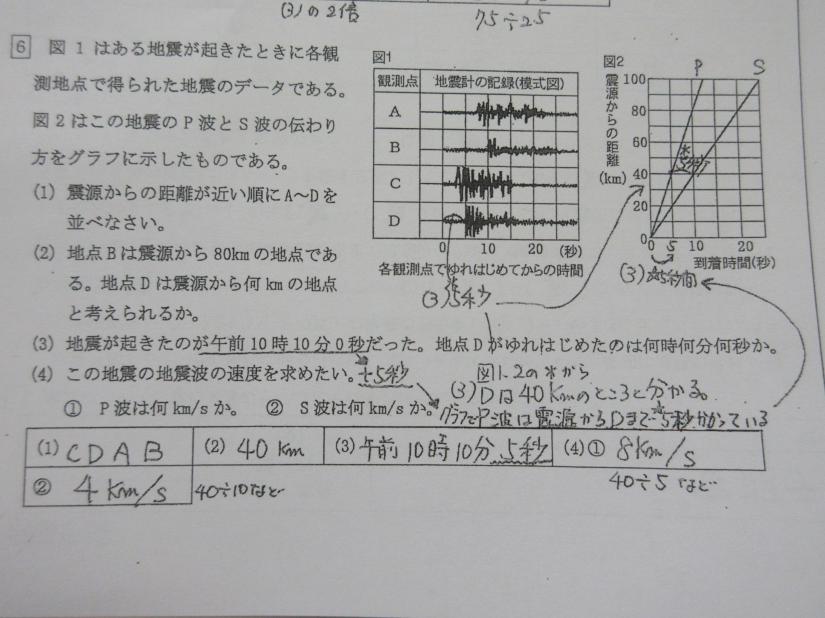 (3)の2倍
75÷25
6 図1はある地震が起きたときに各観
測地点で得られた地震のデータである。
図2はこの地震のP波とS波の伝わり
方をグラフに示したものである。
(1) 震源からの距離が近い順にA~Dを
並べなさい。
(2) 地点Bは震源から80kmの地点であ
る。地点Dは震源から何kmの地点
と考えられるか。
図1
観測点 地震計の記録(模式図)
A
B
C
D
0 10 20 (秒)
各観測点でゆれはじめてからの時間
(3)5秒
図2
P S
震源からの距離
(km)
100
80
60
40
20
0
5秒
0 5 10 20
到着時間(秒)
(3) 5秒間
(3) 地震が起きたのが午前10時10分0秒だった。地点Dがゆれはじめたのは何時何分何秒か。
(4) この地震の地震波の速度を求めたい。+5秒
① P波は何km/sか。 ② S波は何km/sか。
図1、2の*から
(3) Dは40Kmのところと分かる。
グラフでP波は震源からDまで5秒かかっている
(1) C D A B (2) 40 km (3) 午前10時10分5秒 (4)① 8Km/s
② 4 km/s 40÷10など
40÷5など